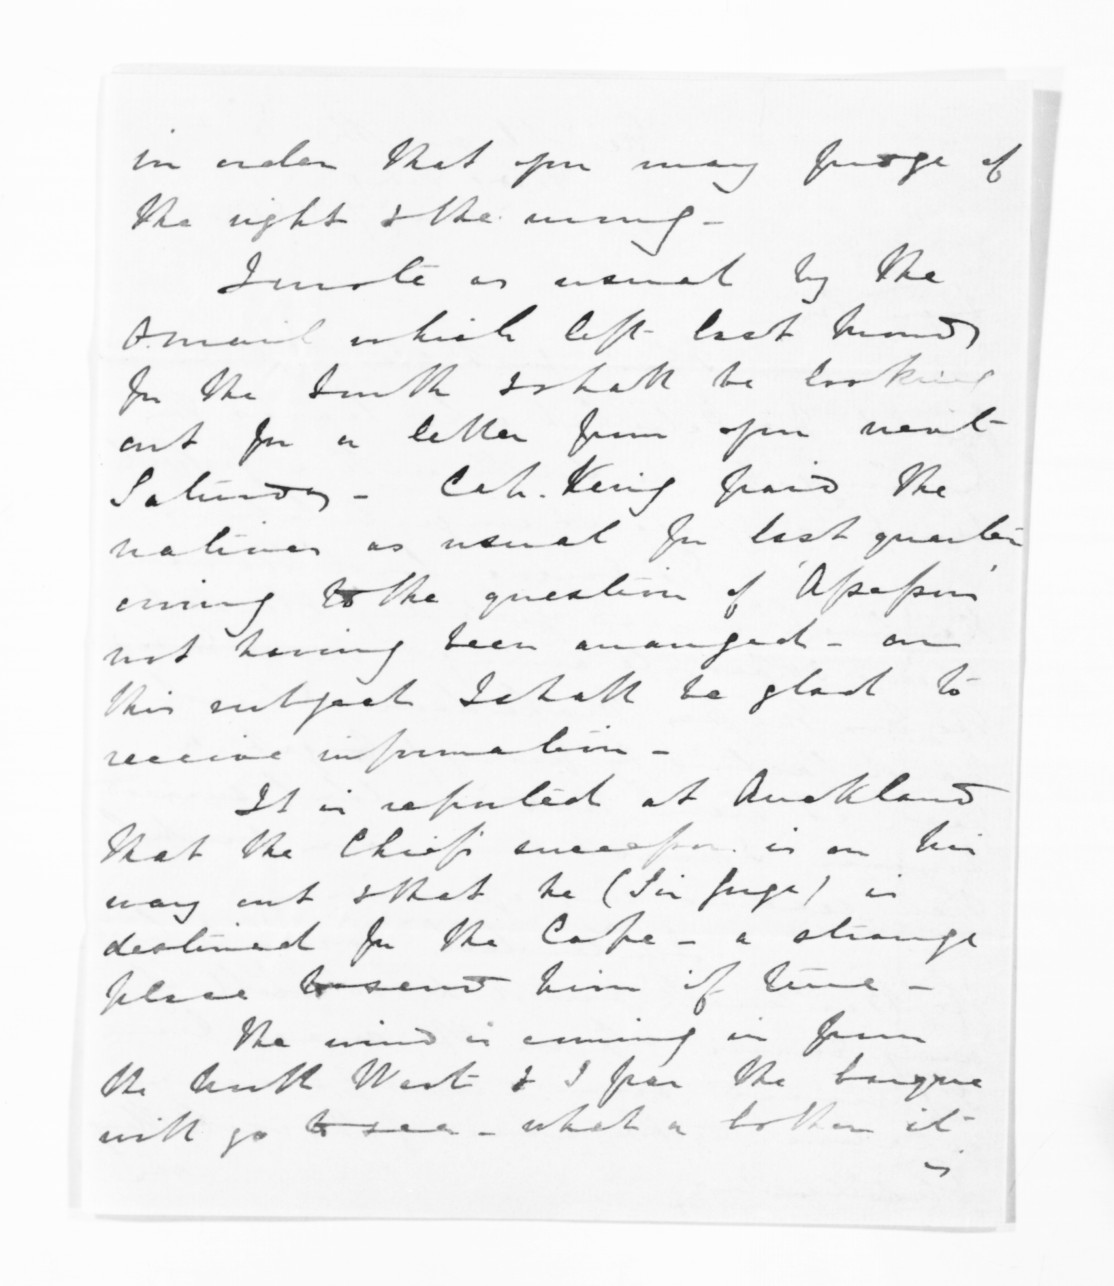 in order that you may judge of
the right & the wrong -
I wrote as usual by the
O. mail which left last Monday
for the South & shall be looking
out for a letter from you next
Saturday - Cap. King paid the
natives as usual for last quarter
owing to the question of 'Assessor'
not having been arranged - on
this subject I shall be glad to
receive information -
It is reported at Auckland
that the Chief's successor is on his
way out & that he (Sir George) is
destined for the Cape - a strange
place to send him if true -
The wind is coming in from
the North West & I fear the barque
will go to sea - what a bother it
is